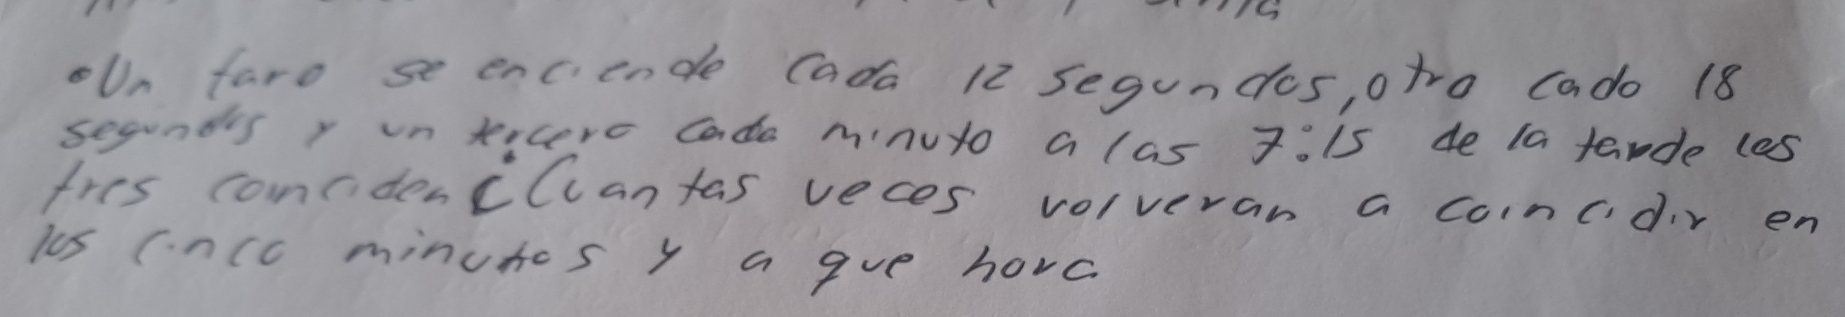 •Un faro se enciende cada 12 segundos, otro cado 18
segundos y un tercero cada minuto a las 7:15 de la tarde los
tres coinciden ¿Cuantas veces volveran a coincidir en
los cinco minutos y a que hora